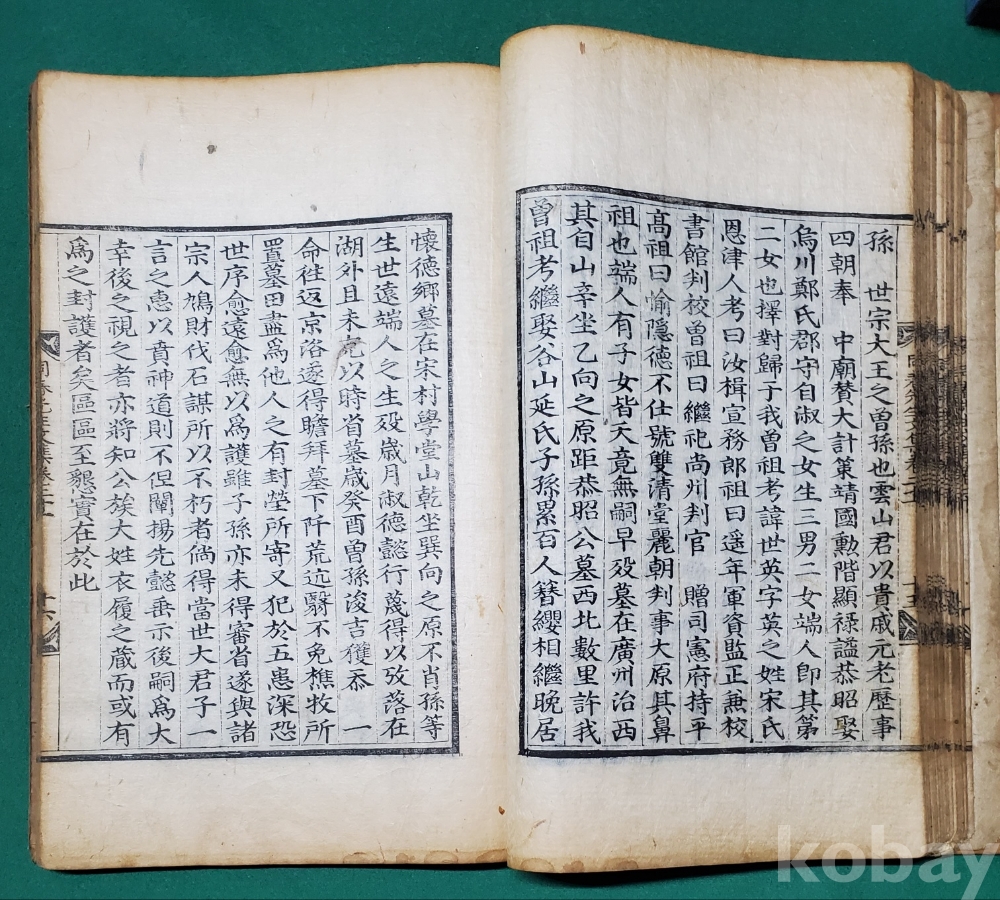 孫　世宗大王之曾孫也雲山君以貴戚元老歷事
四朝奉　中廟贊大計策靖國勳階顯祿謚恭昭娶
烏川鄭氏郡守自淑之女生三男二女端人卽其第
二女也擇對歸于我曾祖考諱世英字英之姓宋氏
恩津人考曰汝楫宣務郞祖曰遥年軍資監正兼校
書館判校曾祖曰繼祀尚州判官　贈司憲府持平
高祖曰愉隱德不仕號雙清堂麗朝判事大原其鼻
祖也端人有子女皆夭竟無嗣早歿墓在廣州治西
其自山辛坐乙向之原距恭昭公墓西北數里許我
曾祖考繼娶谷山延氏子孫累百人簪纓相繼晚居
懷德鄉墓在宋村學堂山乾坐巽向之原不肖孫等
生世遠端人之生歿歲月淑德懿行蔑得以攷落在
湖外且未克以時省墓歲癸酉曾孫浚吉獲忝　一
命往返京洛遂得瞻拜墓下阡荒迒翳不免樵牧所
置墓田盡爲他人之有封塋所寄又犯於五患深恐
世序愈遠愈無以爲護雖子孫亦未得審省遂與諸
宗人鳩財伐石謀所以不朽者倘得當世大君子一
言之惠以賁神道則不但闡揚先懿垂示後嗣爲大
幸後之視之者亦將知公族大姓衣履之藏而或有
爲之封護者矣區區至懇實在於此
kobay